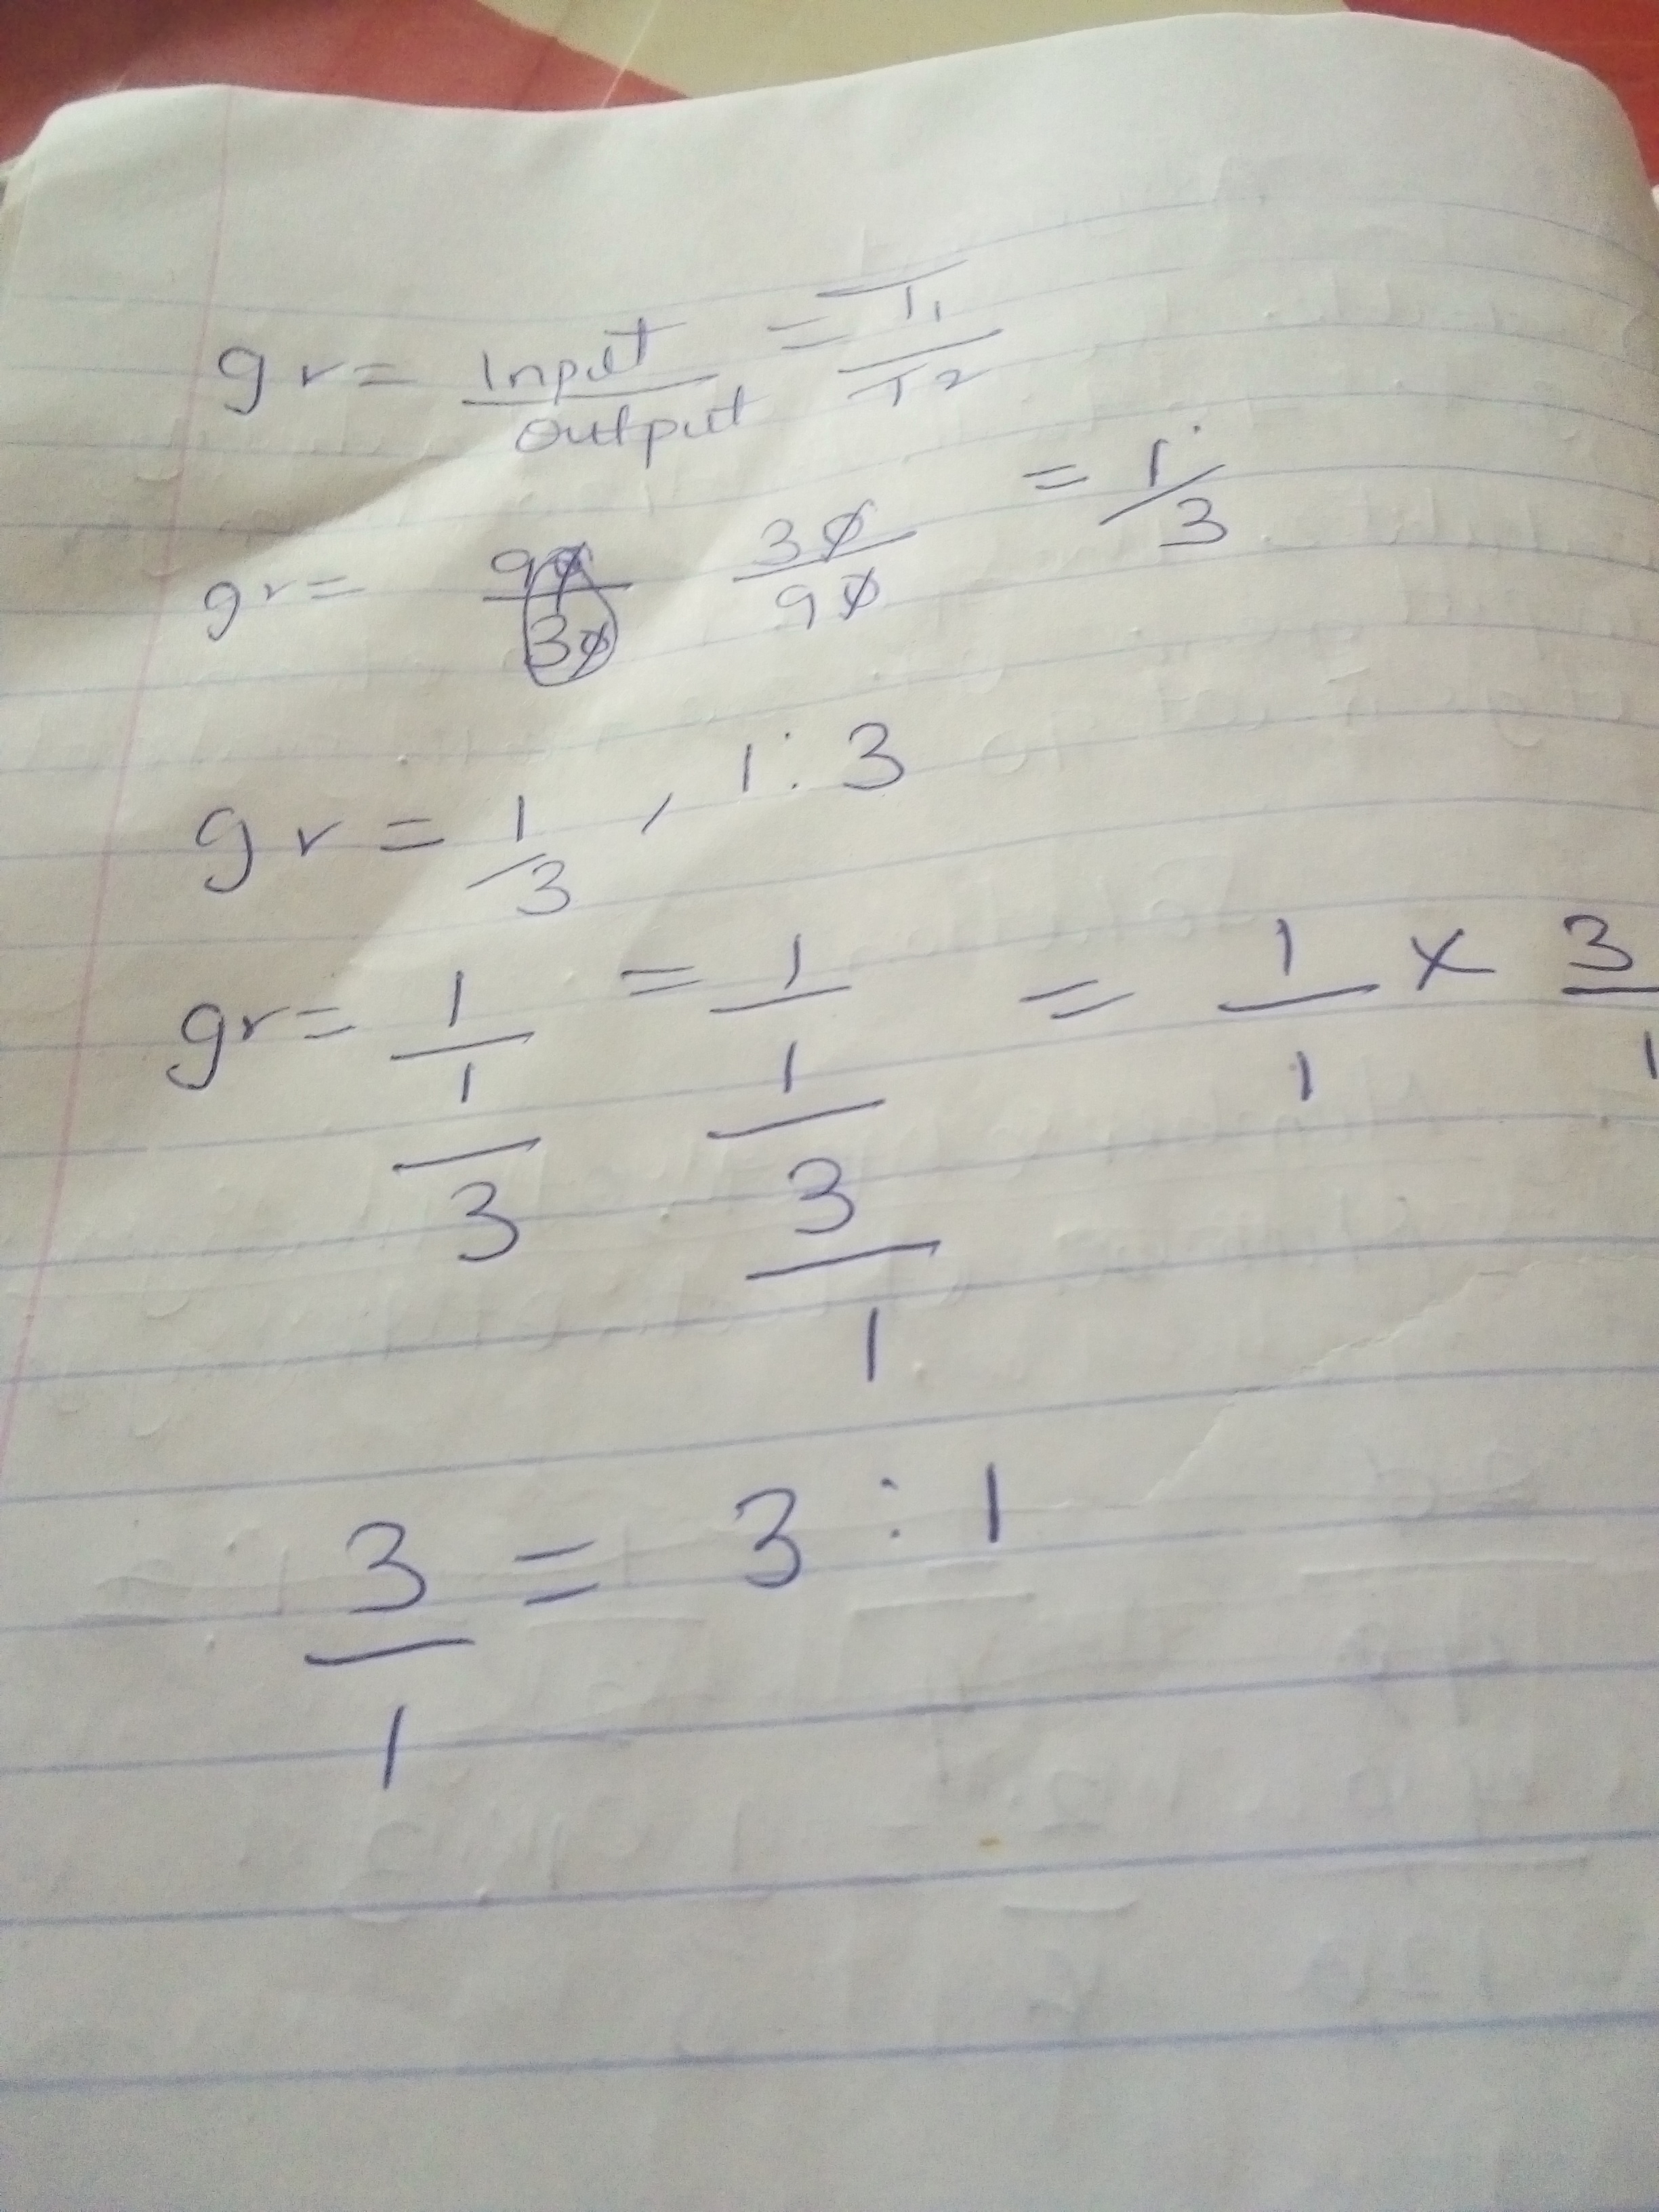 gr = Input/output = T1/T2
gr = 90/30 30/90 = 1/3
gr = 1/3 , 1:3
gr = 1/1/3 = 1/1/3/1 = 1/1 × 3/1
3/1 = 3:1